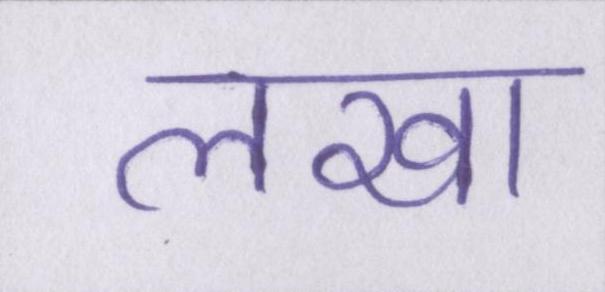 लखा